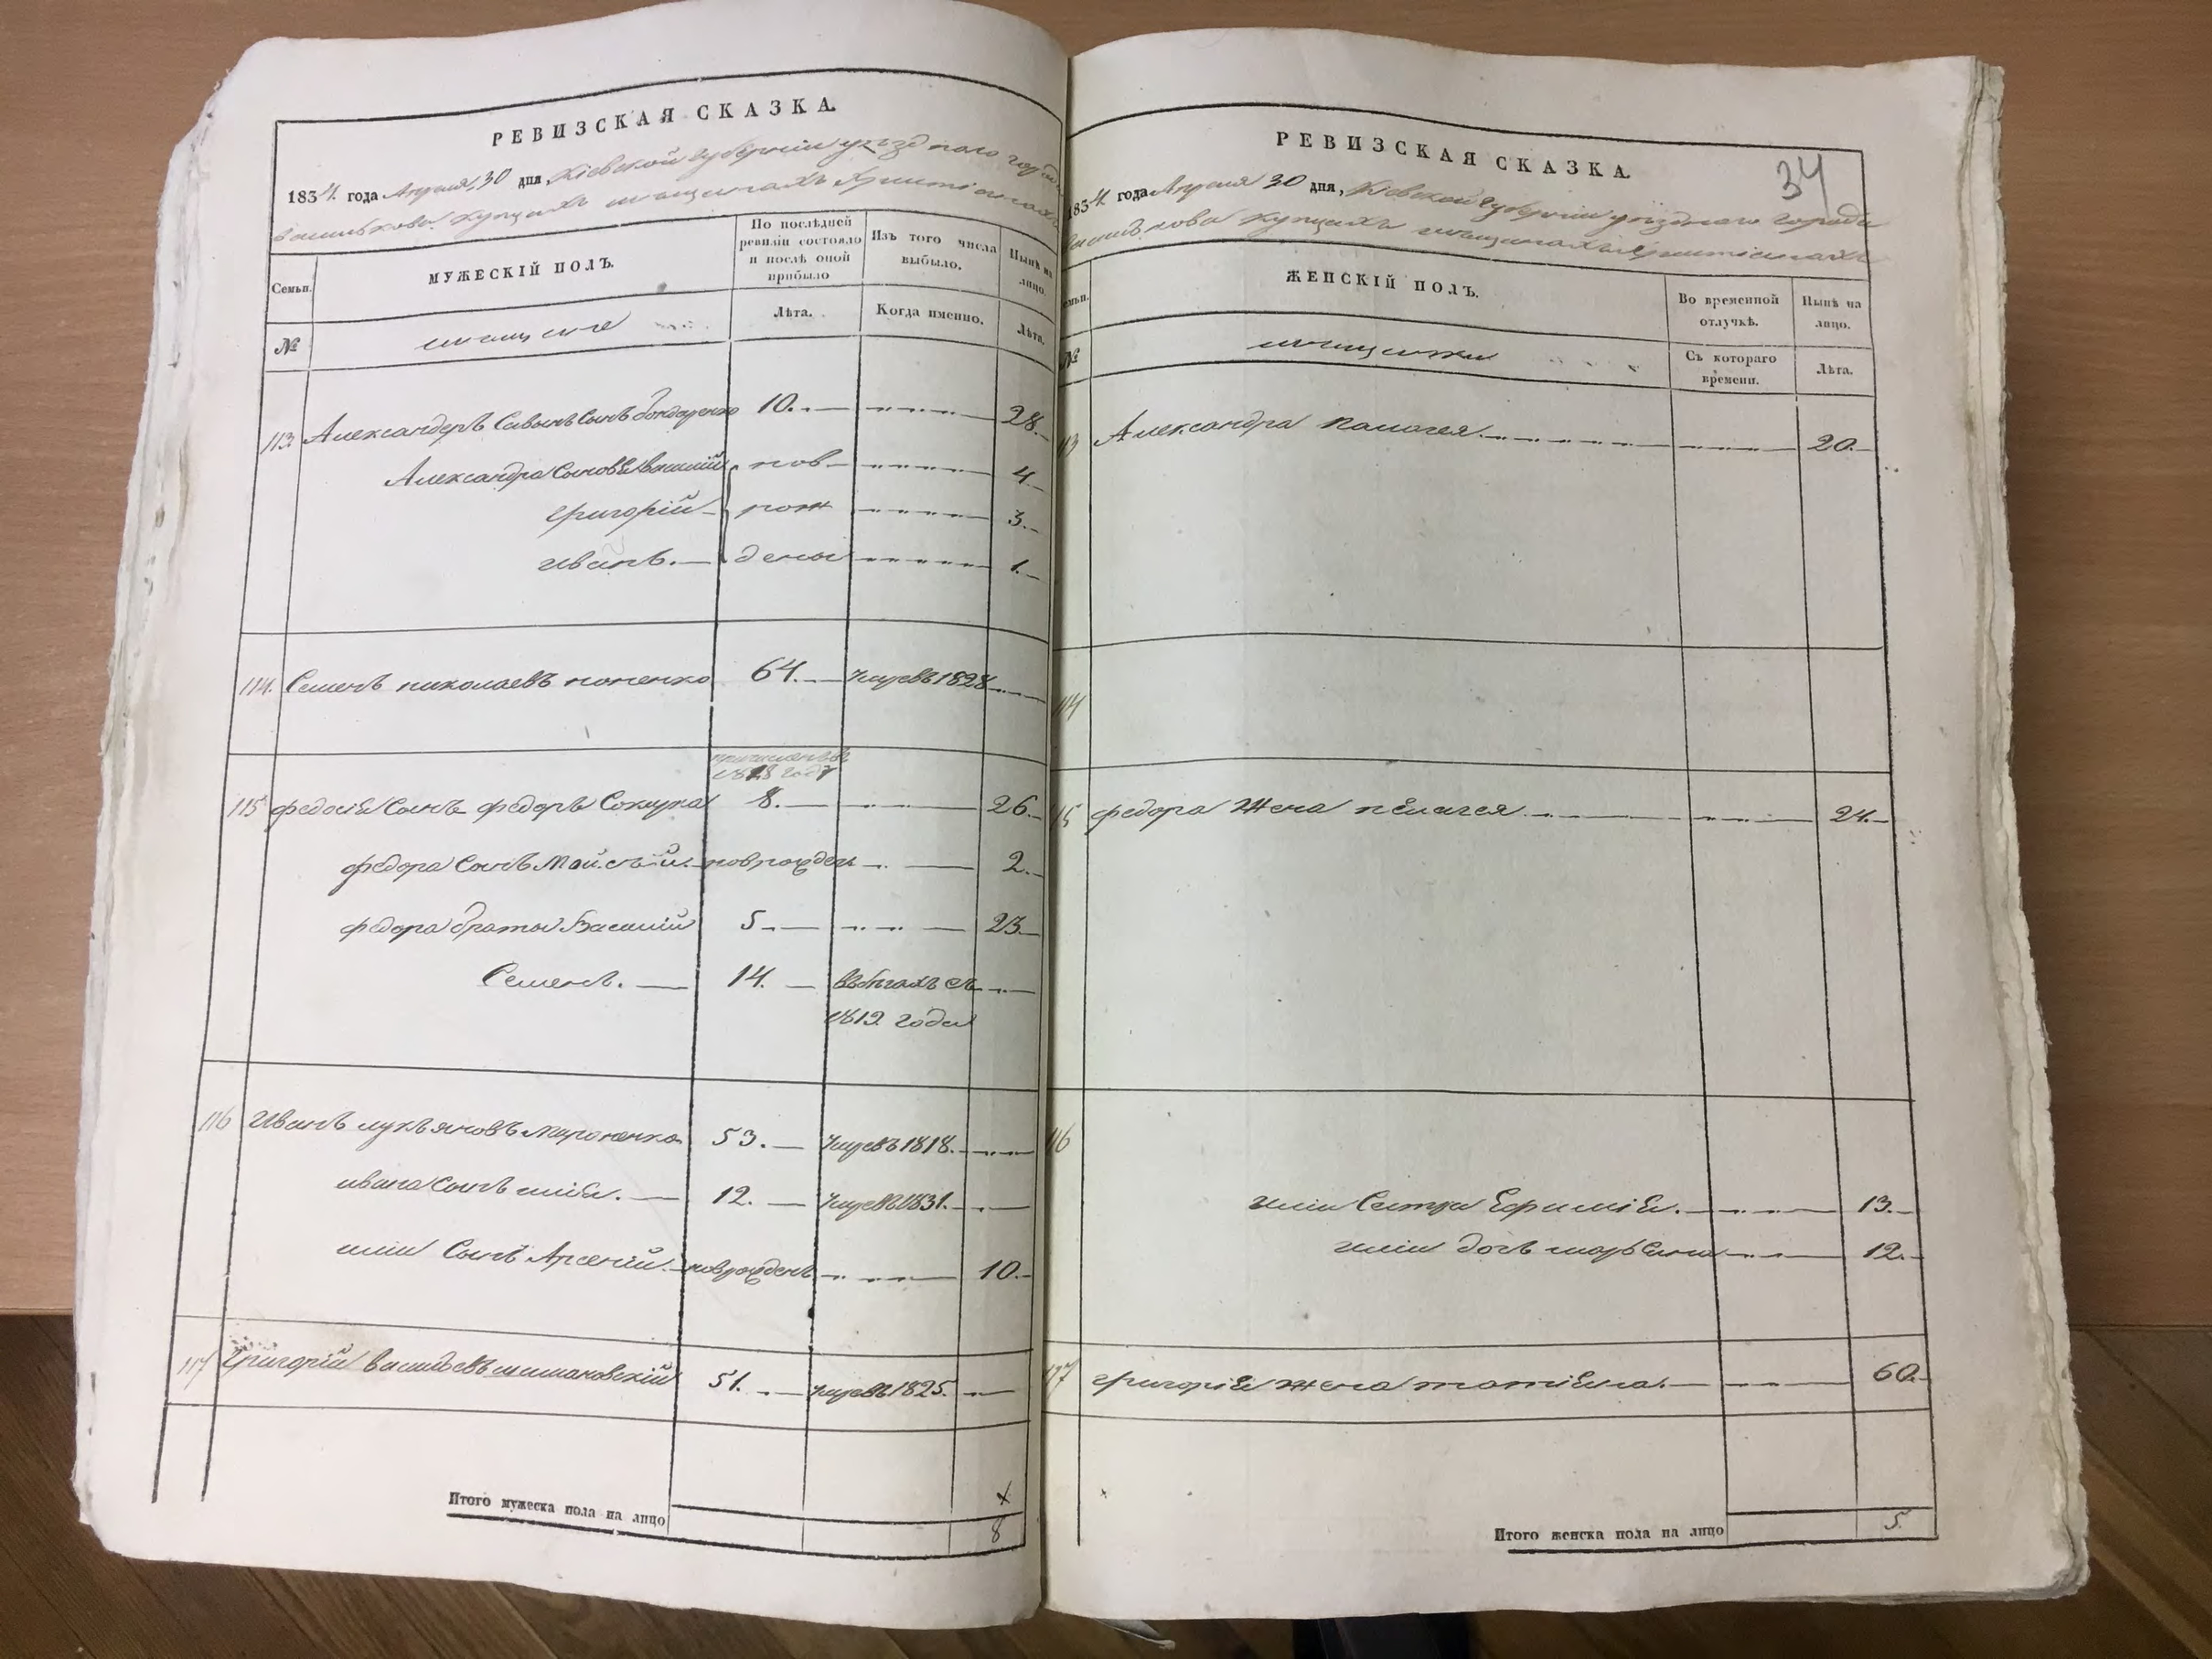 РЕВИЗСКАЯ СКАЗКА.
1834. года Апреля, 30 дня, Кіевской Губерніи уѣзднаго города
Василькова. купцахъ мещанахъ христіанахъ
Семьи.
МУЖЕСКІЙ ПОЛЪ.
По послѣдней ревизіи состояло и послѣ оной прибыло
Изъ того числа выбыло.
Нынѣ на лицо.
№
мещане
Лѣта.
Когда именно.
Лѣта.
113. Александеръ Савынъ Сынъ бондаренко 10. 28.
Александра Сыновья Василій нов 4
Григорій рож 3.
Иванъ. дены 1.
114. Семенъ николаевъ попенко 64. Умре въ 1828
причисленъ въ
1818 году
115 федосія Сынъ федоръ Сокура 8. 26.
федора Сынъ Мойсѣй. новрожден 2.
федора браты Василій 5 23
Семенъ. 14. въ бѣгахъ съ
1812 года
116 Иванъ лукъяновъ мироненко 53. Умре въ 1818.
ивана Сынъ илія. 12. Умре въ 1831.
иліи Сынъ Арсеній. новрожденъ 10.
117 Григорій васильевъ шимановскій 51. Умре въ 1825.
Итого мужеска пола на лицо 8
РЕВИЗСКАЯ СКАЗКА.
34
1834 года Апреля 30 дня, Кіевской Губерніи уѣзднаго города
Василькова купцахъ мещанахъ христіанахъ
Семьи.
ЖЕНСКІЙ ПОЛЪ.
Во временной отлучкѣ.
Нынѣ на лицо.
№
мещанки
Съ котораго времени.
Лѣта.
113 Александра Палагея 20.
114
115 федора Жена пелагея 24.
116
иліи Сестра Ефимія. 13.
иліи дочь марьяна 12.
117 григорія жена татіяна. 60.
Итого женска пола на лицо 5.